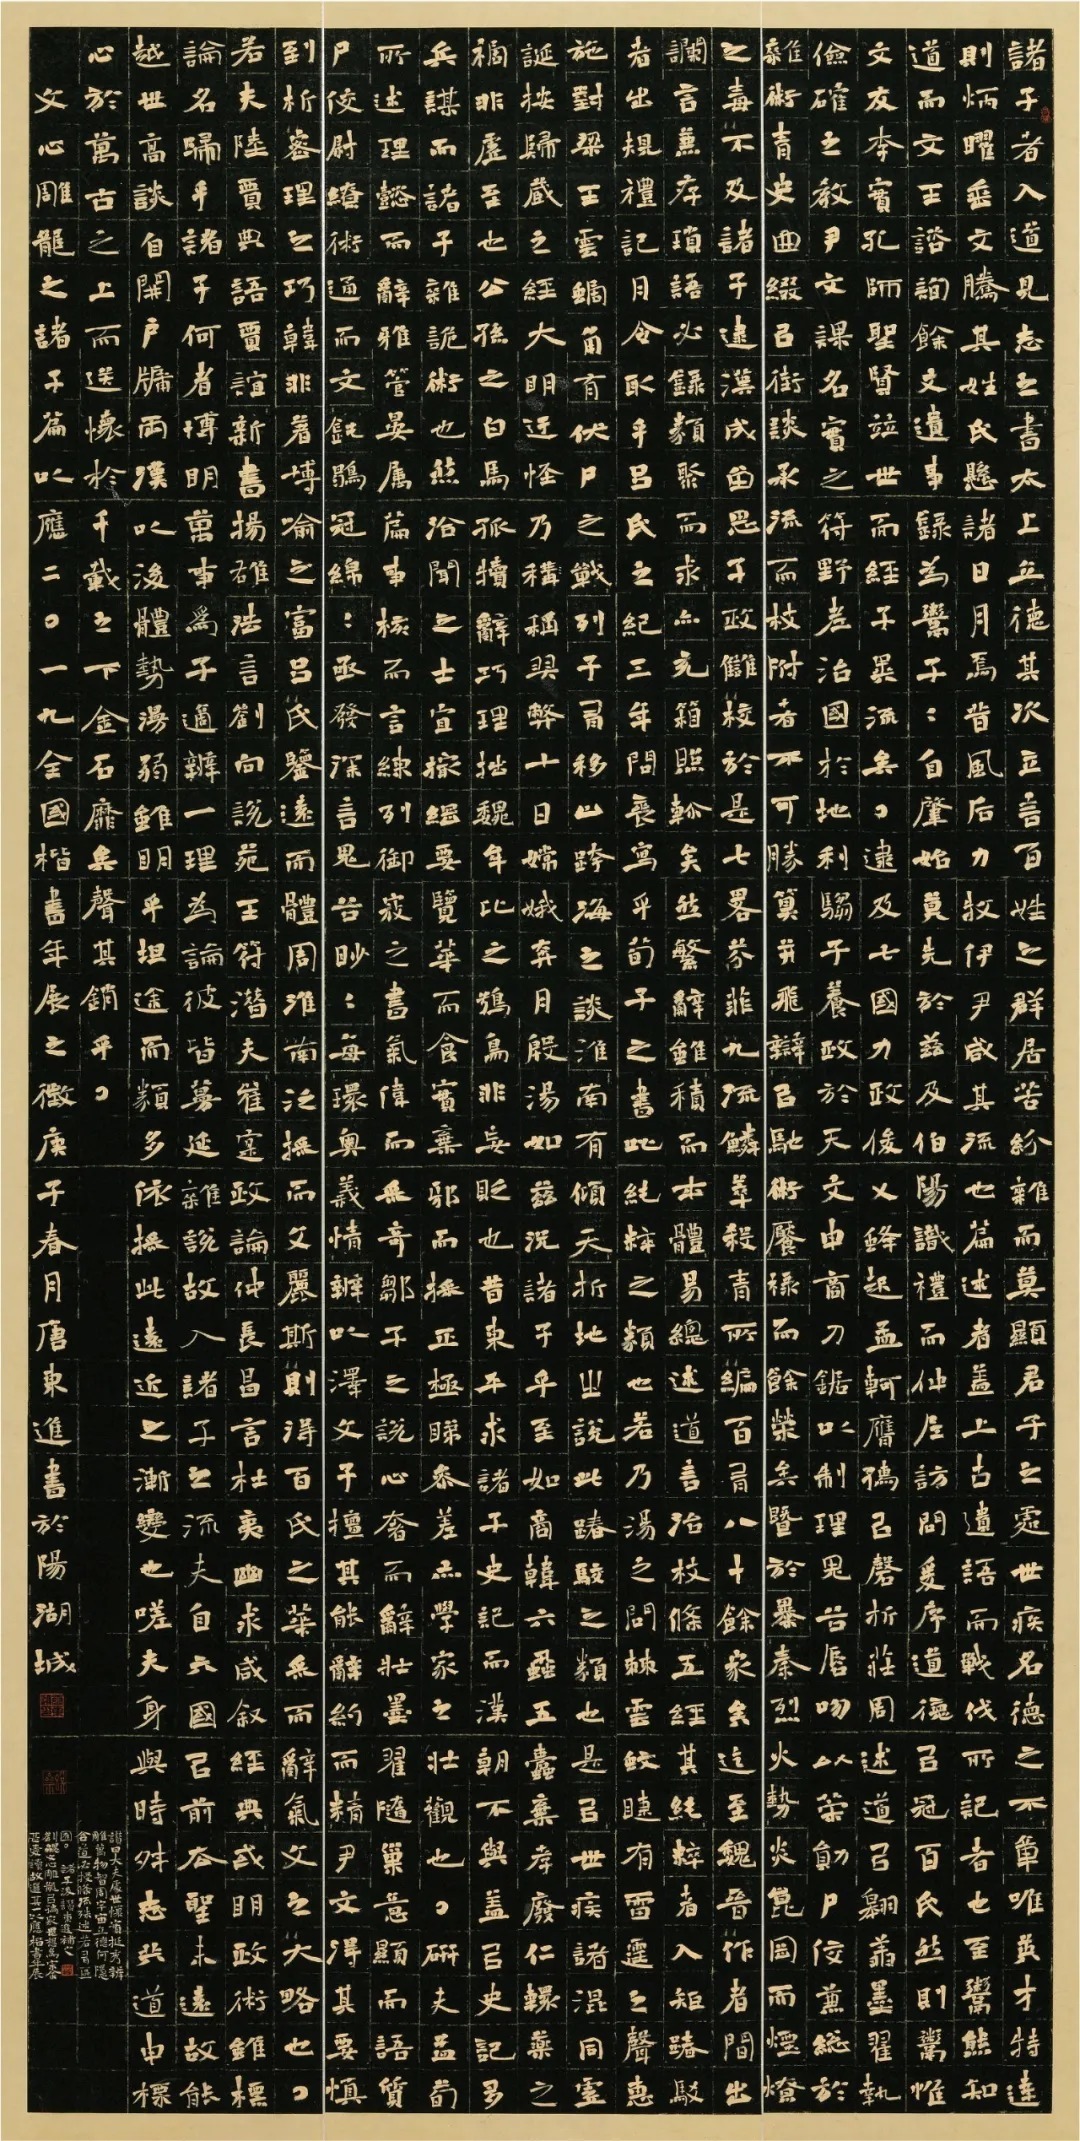 諸子者入道見志之書太上立德其次立言百姓之群居苦紛雜而莫顯君子之處世疾名德之不章唯英才特達
則炳曜垂文騰其姓氏懸諸日月焉昔風后力牧伊尹咸其流也篇述者蓋上古遺語而戰伐所記者也至鬻熊知
道而文王諮詢餘文遺事錄為鬻子〻自肇始莫先於茲及伯陽識禮而仲尼訪問爰序道德㠯冠百氏然則鬻惟
文友李實孔師聖賢並世而經子異流矣〇逮及七國力政俊乂蜂起孟軻膺儒㠯磬折莊周述道㠯翱翥墨翟執
儉確之教尹文課名實之符野老治國於地利騶子養政於天文申商刀鋸以制理鬼谷唇吻以策勳尸佼兼總於
雜術青史曲綴㠯街談承流而枝附者不可勝算並飛辯㠯馳術饜祿而餘榮矣暨於暴秦烈火勢炎崑岡而煙燎
之毒不及諸子逮漢成留思子政讎校於是七略芬菲九流鱗萃殺青所編百有八十餘家矣迄至魏晉作者間出
讕言兼存瑣語必錄類聚而求亦充箱照軫矣然繁辭雖積而本體易總述道言治枝條五經其純粹者入矩踳駁
者出規禮記月令取乎呂氏之紀三年問喪寫乎荀子之書此純粹之類也若乃湯之問棘雲蚊睫有雷霆之聲惠
施對梁王雲蝸角有伏尸之戰列子有移山跨海之談淮南有傾天折地之說此踳駁之類也是㠯世疾諸混同虛
誕按歸藏之經大明迂怪乃稱羿弊十日嫦娥奔月殷湯如茲況諸子乎至如商韓六蝨五蠹棄孝廢仁轘藥之
禍非虛至也公孫之白馬孤犢辭巧理拙魏牟比之鴞鳥非妄貶也昔東平求諸子史記而漢朝不與蓋㠯史記多
兵謀而諸子雜詭術也然洽聞之士宜撮綱要覽華而食實棄邪而採正極睇參差亦學家之壯觀也〇研夫孟荀
所述理懿而辭雅管晏屬篇事核而言練列御寇之書氣偉而采奇鄒子之說心奢而辭壯墨翟隨巢意顯而語質
尸佼尉繚術通而文鈍鶡冠綿〻亟發深言鬼谷眇〻每環奧義情辨以澤文子擅其能辭約而精尹文得其要慎
到析密理之巧韓非著博喻之富呂氏鑒遠而體周淮南泛採而文麗斯則得百氏之華采而辭氣文之大略也〇
若夫陸賈典語賈誼新書揚雄法言劉向說苑王符潛夫崔寔政論仲長昌言杜夷幽求咸敘經典或明政術雖標
論名歸乎諸子何者博明萬事爲子適辨一理為論彼皆蔓延雜說故入諸子之流夫自六國㠯前去聖未遠故能
越世高談自開戶牖兩漢以後體勢湯弱雖明乎坦途而類多依採此遠近之漸變也嗟夫身與時舛志共道申標
心於萬古之上而送懷於千載之下金石靡矣聲其銷乎〇
文心雕龍之諸子篇以應二〇一九全國楷書年展之徵庚子春月唐東進書於陽湖城
讚曰大夫處世懷寶挺秀辨
雕萬物智周宇宙立德何隱
含道必授條流殊述若有區
囿〇